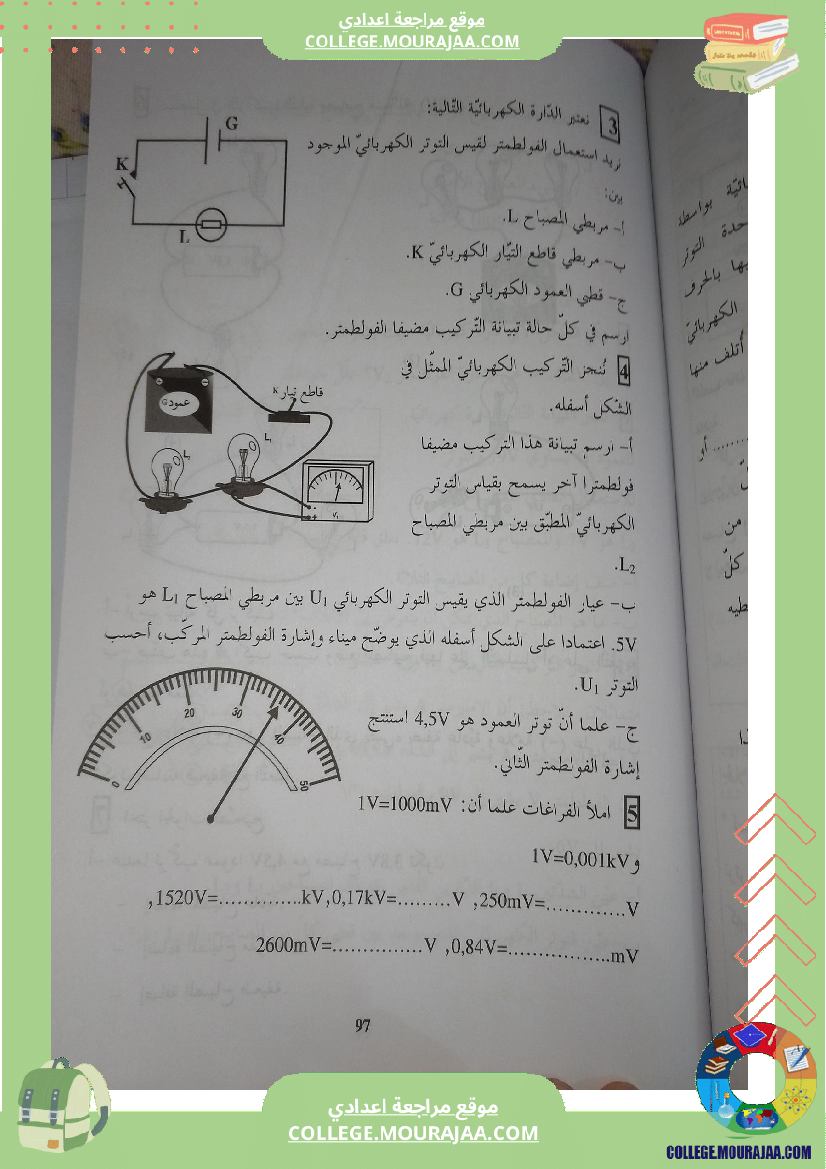 موقع مراجعة اعدادي
COLLEGE.MOURAJAA.COM
3 نعتبر الدّارة الكهربائيّة التّالية:
نريد استعمال الفولطمتر لقيس التوتر الكهربائيّ الموجود
بين:
أ– مربطي المصباح L.
ب– مربطي قاطع التيّار الكهربائيّ K.
ج– قطبي العمود الكهربائي G.
ارسم في كلّ حالة تبيانة التّركيب مضيفا الفولطمتر.
G
K
L
4 نُنجز التّركيب الكهربائيّ الممثّل في
الشّكل أسفله.
أ– ارسم تبيانة هذا التركيب مضيفا
فولطمترا آخر يسمح بقياس التوتر
الكهربائيّ المطبّق بين مربطي المصباح
L2.
عمود G
قاطع تيار K
L1
V1
- +
ب– عيار الفولطمتر الذي يقيس التوتر الكهربائي U1 بين مربطي المصباح L1 هو
5V. اعتمادا على الشكل أسفله الذي يوضّح ميناء وإشارة الفولطمتر المركّب، أحسب
التوتر U1.
ج– علما أنّ توتر العمود هو 4,5V استنتج
إشارة الفولطمتر الثّاني.
0 10 20 30 40 50
5 املأ الفراغات علما أن: 1V=1000mV
و 1V=0,001kV
,1520V=..............kV,0,17kV=.........V ,250mV=.............V
2600mV=...............V ,0,84V=.................mV
97
ائيّة بواسطة
حدة التوتر
يها بالحرف
الكهربائيّ
أُتلف منها
أو
من
كلّ
طيه
موقع مراجعة اعدادي
COLLEGE.MOURAJAA.COM
COLLEGE.MOURAJAA.COM